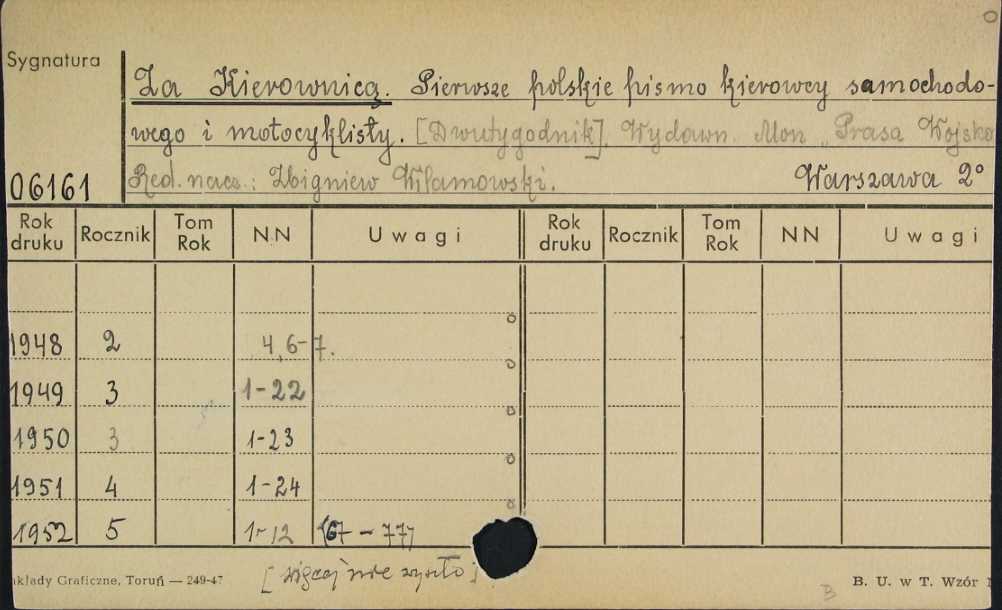 Sygnatura
Za Kierownicą. Pierwsze polskie pismo kierowcy samochodo-
wego i motocyklisty. [Dwutygodnik]. Wydawn. Mon „Prasa Wojsko
06161 Red. nacz.: Zbigniew Wilamowski. Warszawa 2°
Rok druku Rocznik Tom Rok NN Uwagi Rok druku Rocznik Tom Rok NN Uwagi
1948 2 4, 6-7.
1949 3 1-22
1950 3 1-23
1951 4 1-24
1952 5 1-12 (67-77)
[więcej nie wyszło]
akłady Graficzne, Toruń — 249-47 B. U. w T. Wzór 1
B